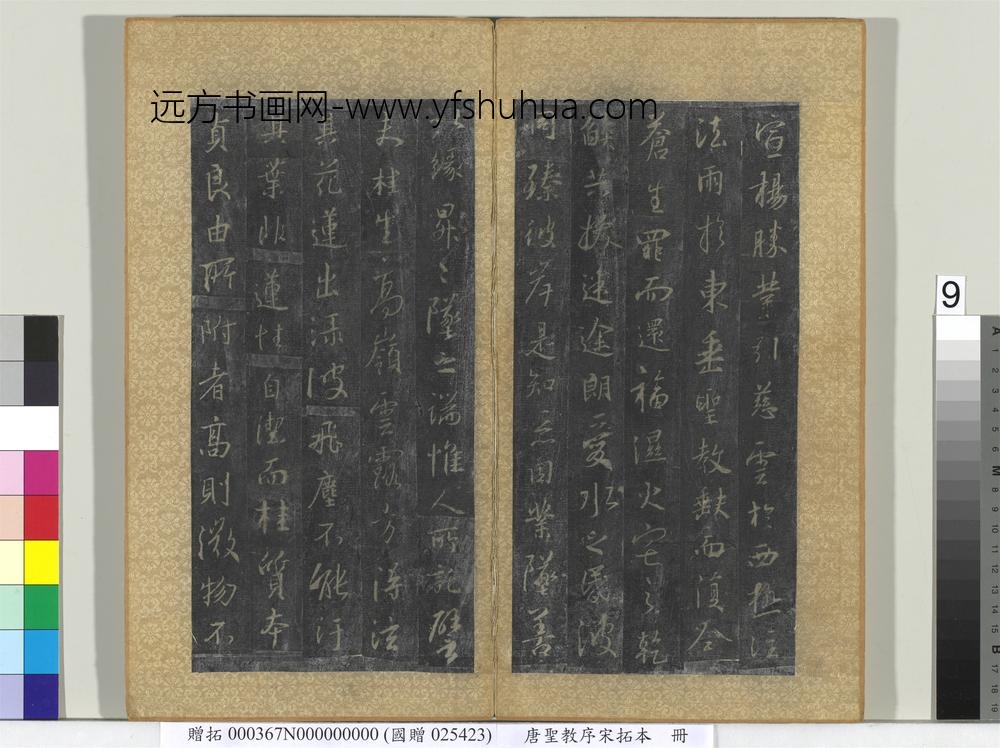 远方书画网-www.yfshuhua.com
宣揚勝業引慈雲於西極注
法雨於東垂聖教缺而復全
蒼生罪而還福濕火宅之乾
燄共拔迷途朗愛水之昏波
同臻彼岸是知惡因業墜善
以緣昇〻墜之端惟人所託譬
夫桂生高嶺雲露方得泫
其花蓮出淥波飛塵不能汙
其葉非蓮性自潔而桂質本
貞良由所附者高則微物不
9
A 1 2 3 4 5 6 M 8 9 10 11 12 13 14 15 B 17 18 19
贈拓 000367N000000000 (國贈 025423) 唐聖教序宋拓本 冊